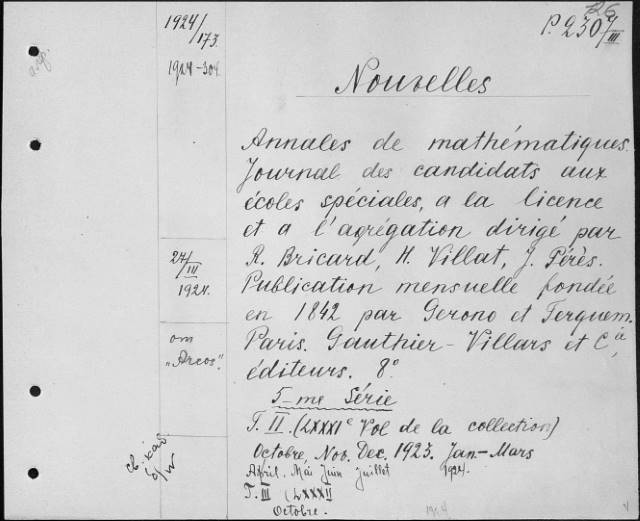 26
P. 230/III
1924/173.
1924-304.
Nouvelles
Annales de mathématiques.
Journal des candidats aux
écoles spéciales, a la licence
et a l'agrégation dirigé par
R. Bricard, H. Villat, J. Pérès.
Publication mensuelle fondée
en 1842 par Gerono et Terquem.
Paris. Gauthier-Villars et Cie,
éditeurs. 8°
5-me Série
T. II. (LXXXIe Vol de la collection)
Octobre, Nov. Dec. 1923. Jan-Mars
1924.
April. Mai Juin Juillet
T. III (LXXXII
Octobre.
27/III
1924.
от
"Arcos".
1924